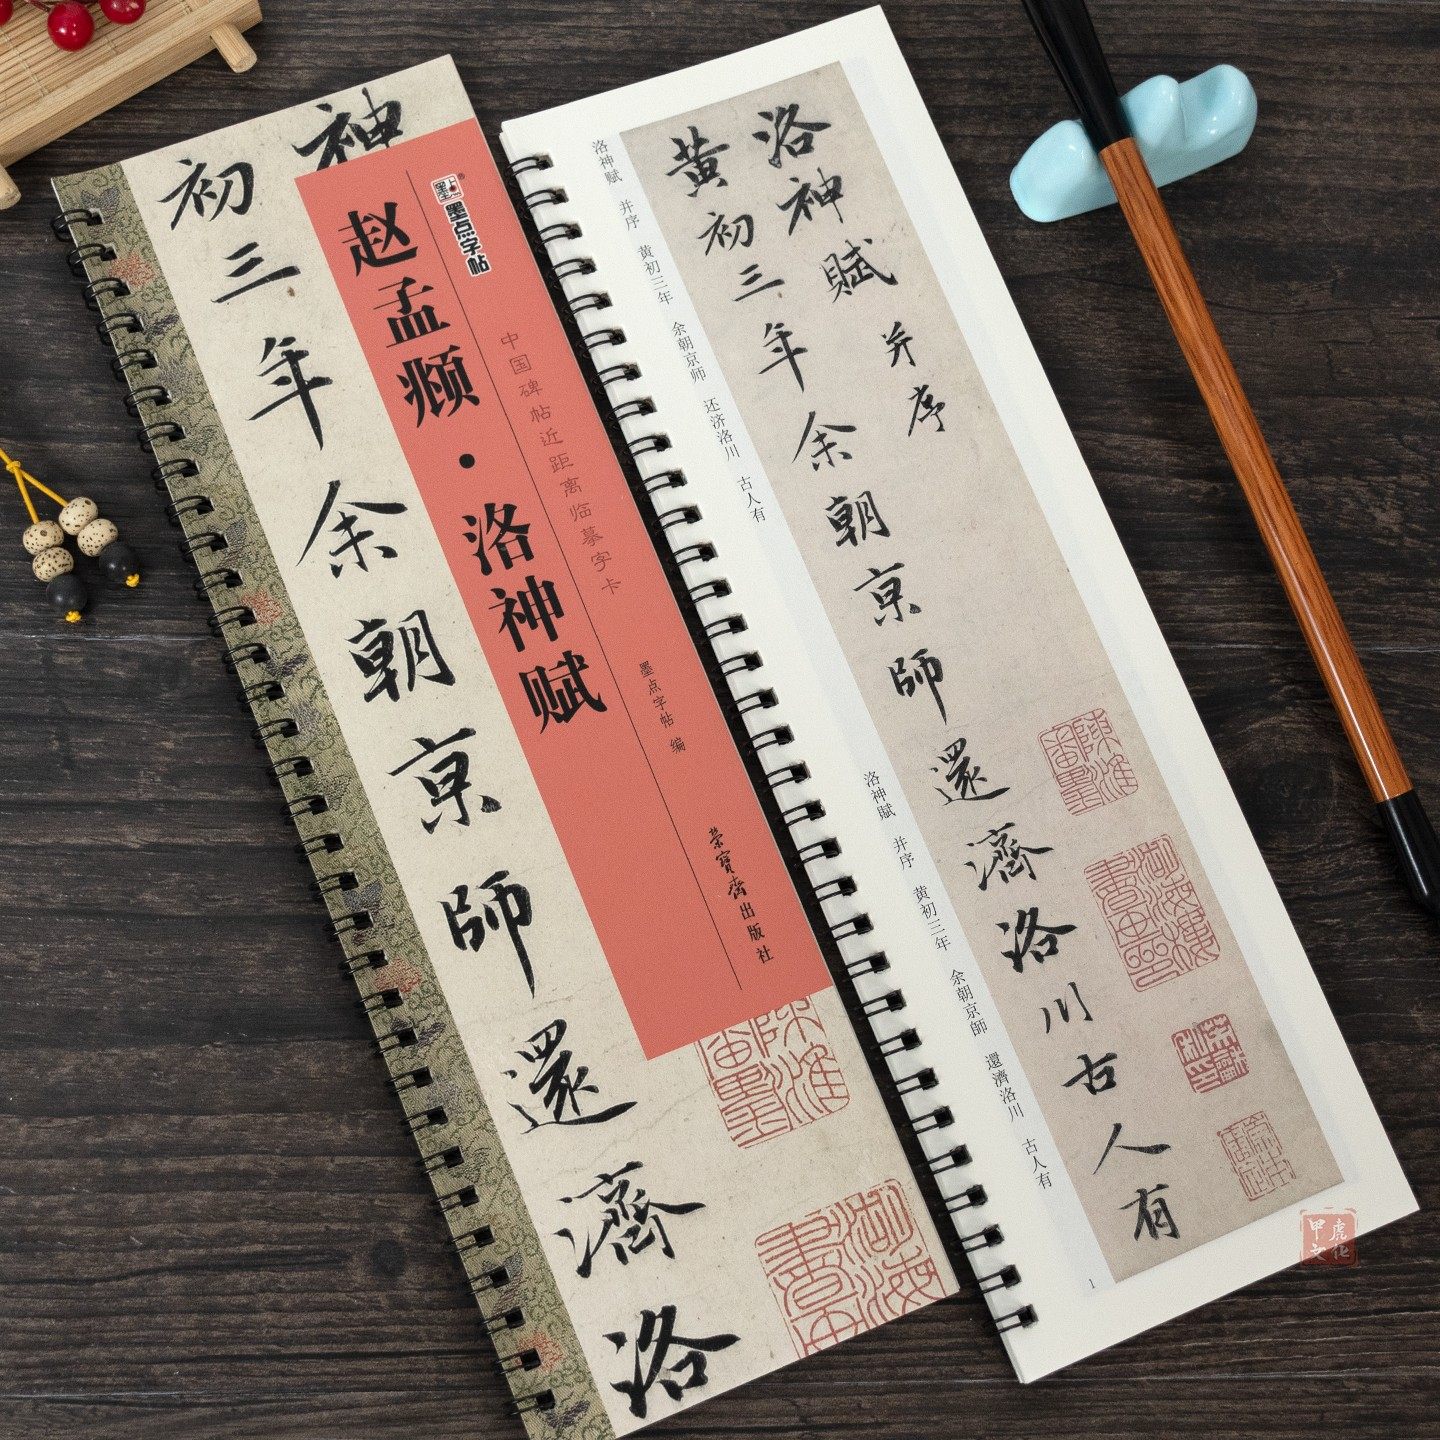 神
初三年余朝京師還濟洛
墨点字帖
赵孟頫·洛神赋
中国碑帖近距离临摹字卡
墨点字帖 编
荣宝斋出版社
洛神賦 并序
黄初三年余朝京師還濟洛川古人有
洛神赋 并序 黄初三年 余朝京师 还济洛川 古人有
洛神賦 并序 黄初三年 余朝京師 還濟洛川 古人有
1
甲虎文化